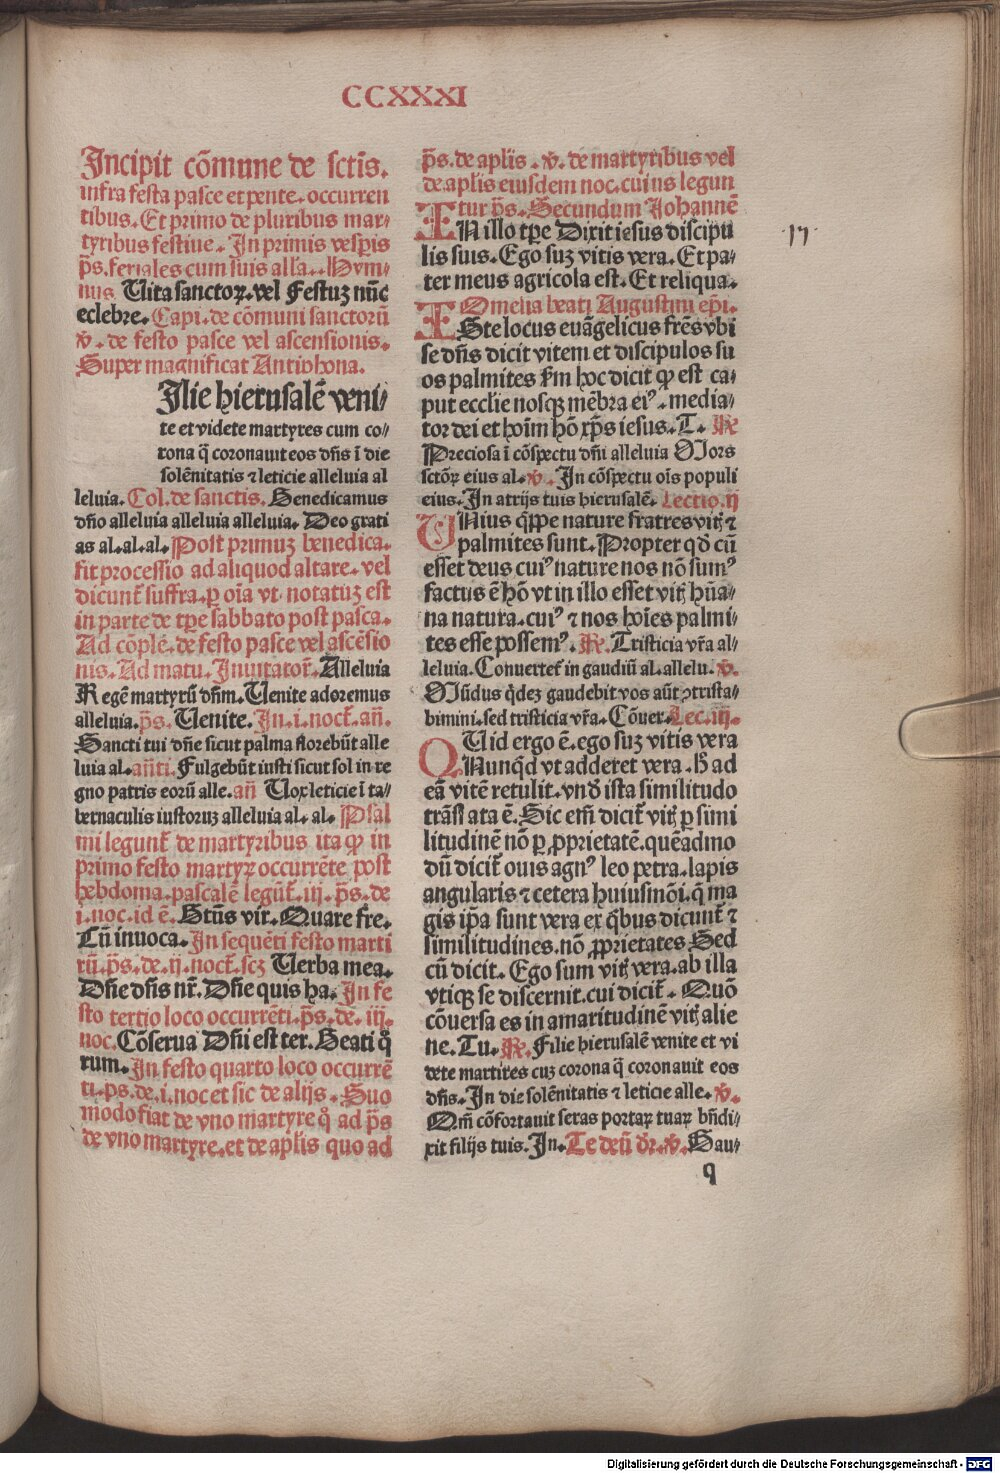 CCXXXI
Incipit cõmune de sctĩs.
infra festa pasce et pente. occurren
tibus. Et primo de pluribus mar-
tyribus festiue. In primis vesp̃is
p̃s. feriales cum suis alľa. Hym-
nus Uita sanctoꝝ. vel Festuꝫ nũc
celebre. Capi. de cõmuni sanctorũ
℣. de festo pasce vel ascensionis.
Super magnificat Antiphona.
Ilie hierusalẽ veni-
te et videte martyres cum co-
rona q̃ coronauit eos dñs ĩ die
solẽnitatis ⁊ leticie alleluia al
leluia. Col. de sanctis. Benedicamus
dño alleluia alleluia alleluia. Deo grati
as al. al. al. Post primuꝫ benedica.
fit processio ad aliquod altare. vel
dicunt̃ suffra. ꝑ oĩa vt notatuꝫ est
in parte de tp̃e sabbato post pasca.
Ad cõple. de festo pasce vel ascẽsio
nis. Ad matu. Inuitator̃. Alleluia
Regẽ martyrũ dñm. Uenite adoremus
alleluia. p̃s. Uenite. In .i. noct̃. añ.
Sancti tui dñe sicut palma florebũt alle
luia al. añti. Fulgebũt iusti sicut sol in re
gno patris eorũ alle. añ Uox leticie ĩ ta-
bernaculis iustoruꝫ alleluia al. al. Psal
mi legunt̃ de martyribus ita ꝙ in
primo festo martyꝝ occurrẽte post
hebdoma. pascalẽ legũt̃. iij. p̃s. de
i. noc. id ẽ. Btũs vir. Quare fre.
Cũ inuoca. In sequẽti festo marti
rũ. p̃s. de. ij. noct̃. scꝫ Uerba mea.
Dñe dñs nr̃. Dñe quis ha. In fe
sto tertio loco occurrẽti. p̃s. de. iij.
noc. Cõserua Dñi est ter. Beati q̊
rum. In festo quarto loco occurrẽ
ti. ps. de. i. noc et sic de alijs. Quo
modo fiat de vno martyre q̊ ad p̃s
de vno martyre. et de apľis quo ad
p̃s. de apľis. ℣. de martyribus vel
de apľis eiusdem noc. cuius legun
tur p̃s. Secundum Johannẽ
IN illo tp̃e Dixit iesus discipu
lis suis. Ego suꝫ vitis vera. Et pa-
ter meus agricola est. Et reliqua.
Omelia beati Augustini ep̃i.
ISte locus euãgelicus fr̃es vbi
se dñs dicit vitem et discipulos su
os palmites ẜm hoc dicit ꝙ est ca-
put ecclie nosqꝫ mẽbra eiꝰ. media-
tor dei et hoĩm hõ xp̃s iesus. T. ℟
Preciosa ĩ cõspectu dñi alleluia Mors
sctõꝝ eius al. ℣. In cõspectu oĩs populi
eius. In atrijs tuis hierusalẽ. Lectio. ij
UNius q̃ppe nature fratres vitꝭ ⁊
palmites sunt. Propter qd̃ cũ
esset deus cuiꝰ nature nos nõ sumꝰ
factus ẽ hõ vt in illo esset vitꝭ hũa-
na natura. cuiꝰ ⁊ nos hoĩes palmi-
tes esse possemꝰ. ℟. Tristicia vr̃a al-
leluia. Conuertet̃ in gaudiũ al. allelu. ℣.
Mũdus q̃deꝫ gaudebit vos aũt ꝯtrista-
bimini. sed tristicia vr̃a. Cõuer. Lec. iij.
QUid ergo ẽ. ego suꝫ vitis vera
Nunqd̃ vt adderet vera. h̃ ad
eã vitẽ retulit. vnd̃ ista similitudo
trãslata ẽ. Sic em̃ dicit̃ vitꝭ ꝑ simi
litudinẽ nõ ꝑ ꝓprietatẽ. quẽadmo
dũ dicit̃ ouis agnꝰ leo petra. lapis
angularis ⁊ cetera huiusmõi. q̃ ma
gis ip̃a sunt vera ex q̃bus dicunt̃ ⁊
similitudines. nõ ꝓprietates. Sed
cũ dicit. Ego sum vitꝭ vera. ab illa
vtiqꝫ se discernit. cui dicit̃. Quõ
cõuersa es in amaritudinẽ vitꝭ alie
ne. Tu. ℟. Filie hierusalẽ venite et vi
dete martires cuꝫ corona q̃ coronauit eos
dñs. In die solẽnitatis ⁊ leticie alle. ℣.
Qm̃ cõfortauit seras portaꝝ tuaꝝ bñdi-
xit filijs tuis. In. Te deũ dr̃. ℣. Gau-
q
17
Digitalisierung gefördert durch die Deutsche Forschungsgemeinschaft - DFG